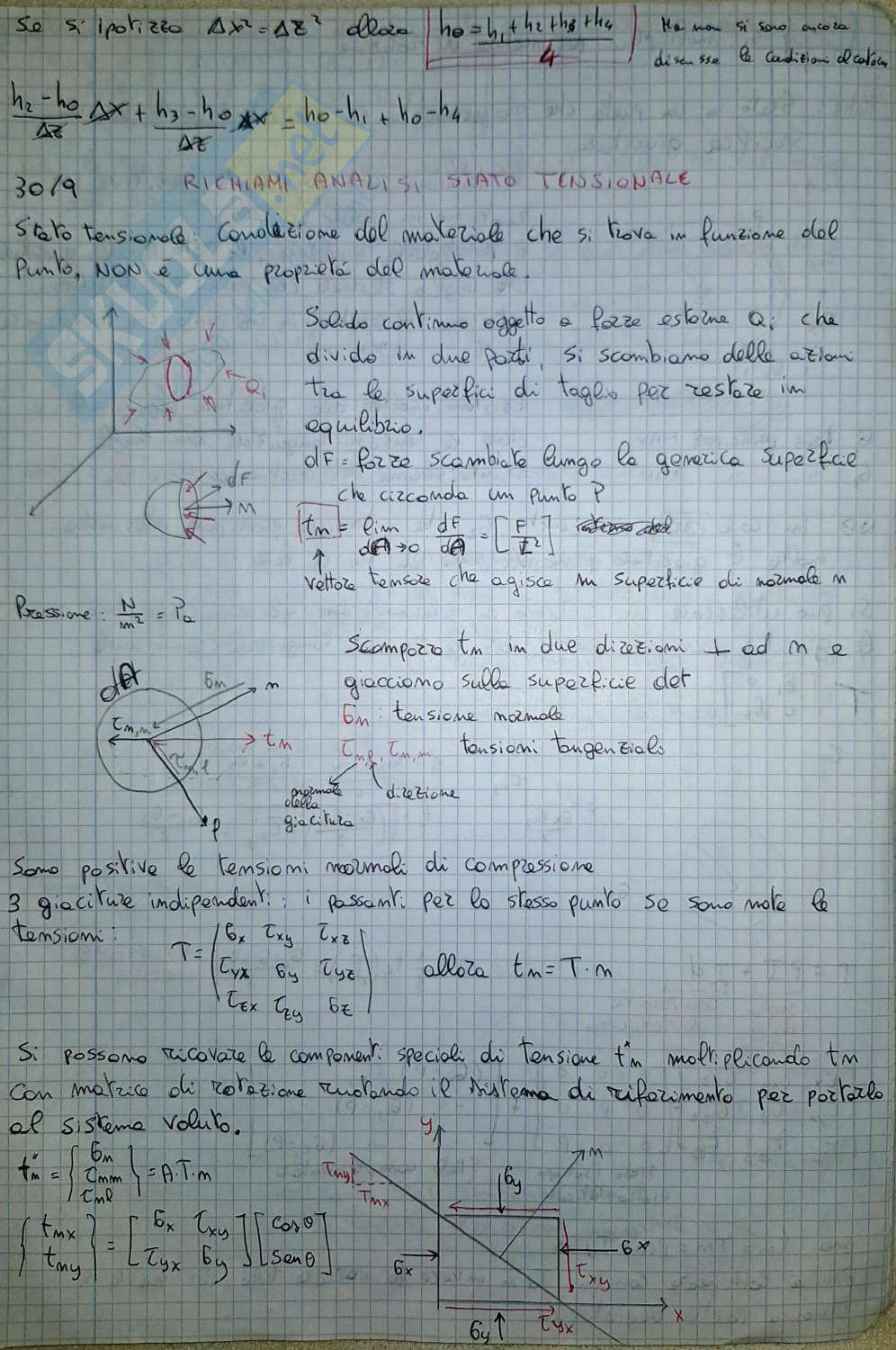 Se si ipotizza Δx² = Δz² allora h0 = (h1 + h2 + h3 + h4)/4 Ma non si sono ancora
discusse le condizioni al contorno
(h2 - h0)/Δz Δx + (h3 - h0)/Δz Δx = h0 - h1 + h0 - h4
30/9 RICHIAMI ANALISI STATO TENSIONALE
Stato tensionale: Condizione del materiale che si trova in funzione del
Punto, NON è una proprietà del materiale.
Solido continuo oggetto a forze esterne Qi che
divido in due parti, si scambiano delle azioni
tra le superfici di taglio per restare in
equilibrio.
Qi
dF = forze scambiate lungo la generica superficie
che circonda un punto P
dF
n
tn = lim dA→0 dF/dA = [F/L²]
vettore tensore che agisce in superficie di normale n
Pressione: N/m² = Pa
Scompozzo tn in due direzioni ⊥ ad n e
giacciono sulla superficie det
σn: tensione normale
τnl, τn,m tensioni tangenziali
normale della giacitura
direzione
dA
σn
n
τn,m
tn
τnl
l
Sono positive le tensioni normali di compressione
3 giaciture indipendenti: i passanti per lo stesso punto se sono note le
tensioni:
T = (σx τxy τxz
τyx σy τyz
τzx τzy σz) allora tn = T·n
Si possono ricavare le componenti speciali di tensione t*n moltiplicando tn
con matrice di rotazione ruotando il sistema di riferimento per portarlo
al sistema voluto.
t*n = {σn τnm τnl} = A·T·n
{tnx tny} = [σx τxy
τyx σy] [cosθ
senθ]
y
τny
τnx
σy
n
σx
σx
τxy
x
σy
τyx
SKUOLA.net